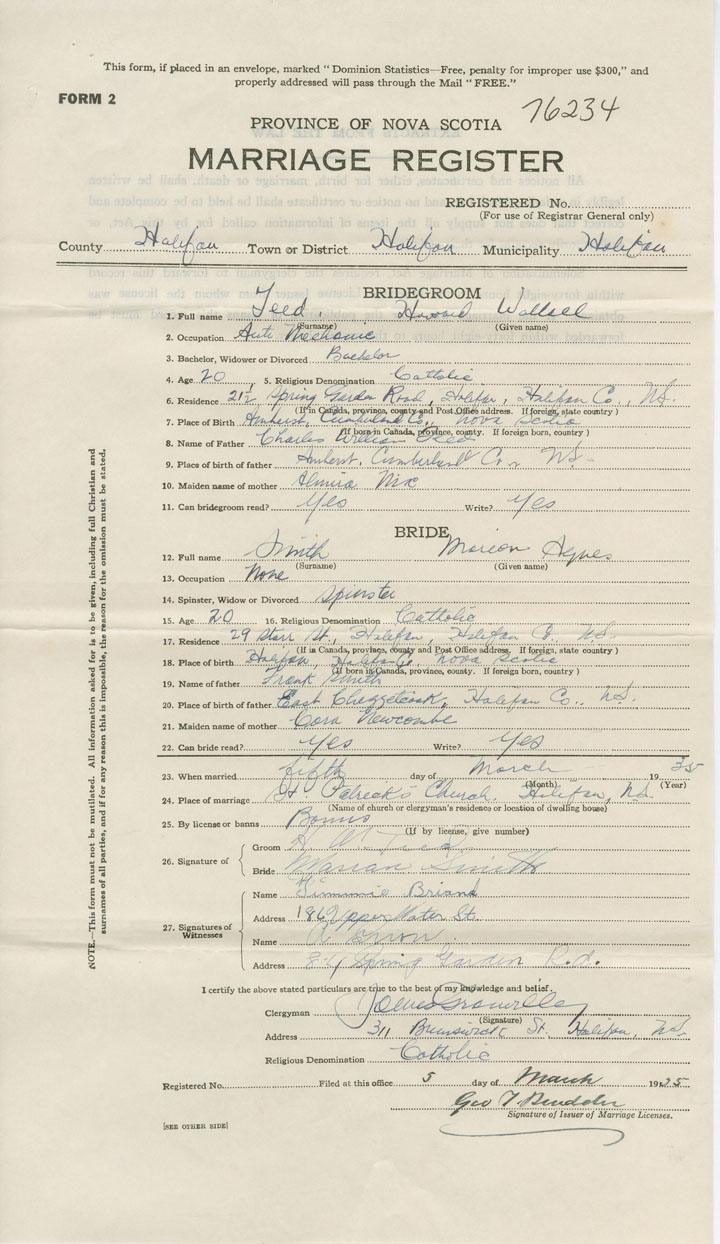 This form, if placed in an envelope, marked "Dominion Statistics—Free, penalty for improper use $300," and
properly addressed will pass through the Mail "FREE."
FORM 2
76234
PROVINCE OF NOVA SCOTIA
MARRIAGE REGISTER
REGISTERED No.
(For use of Registrar General only)
County Halifax Town or District Halifax Municipality Halifax
BRIDEGROOM
1. Full name Teed, Howard Wallace
(Surname) (Given name)
2. Occupation Auto Mechanic
3. Bachelor, Widower or Divorced Bachelor
4. Age 20, 5. Religious Denomination Catholic
6. Residence 212 Spring Garden Road, Halifax, Halifax Co., N.S.
(If in Canada, province, county and Post Office address. If foreign, state country)
7. Place of Birth Amherst, Cumberland Co., Nova Scotia
(If born in Canada, province, county. If foreign born, country)
8. Name of Father Charles William Teed
9. Place of birth of father Amherst, Cumberland Co., N.S.
10. Maiden name of mother Almira Nix
11. Can bridegroom read? Yes Write? Yes
BRIDE
12. Full name Smith Marion Agnes
(Surname) (Given name)
13. Occupation None
14. Spinster, Widow or Divorced Spinster
15. Age 20 16. Religious Denomination Catholic
17. Residence 29 Starr St., Halifax, Halifax Co., N.S.
(If in Canada, province, county and Post Office address. If foreign, state country)
18. Place of birth Halifax, Halifax Co., Nova Scotia
(If born in Canada, province, county. If foreign born, country)
19. Name of father Frank Smith
20. Place of birth of father East Chezzetcook, Halifax Co., N.S.
21. Maiden name of mother Cora Newcombe
22. Can bride read? Yes Write? Yes
23. When married fifth day of March 1935
(Month) (Year)
24. Place of marriage St. Patrick's Church, Halifax, N.S.
(Name of church or clergyman's residence or location of dwelling house)
25. By license or banns Banns
(If by license, give number)
26. Signature of
Groom H. W. Teed
Bride Marion Smith
27. Signatures of Witnesses
Name Jimmie Briand
Address 186 Upper Water St.
Name
Address 84 Spring Garden Rd.
I certify the above stated particulars are true to the best of my knowledge and belief.
Clergyman
(Signature)
Address 311 Brunswick St. Halifax, N.S.
Religious Denomination Catholic
Registered No. Filed at this office 5 day of March 1935
Geo
Signature of Issuer of Marriage Licenses.
[SEE OTHER SIDE]
NOTE.—This form must not be mutilated. All information asked for is to be given, including full Christian and
surnames of all parties, and if for any reason this is impossible, the reason for the omission must be stated.